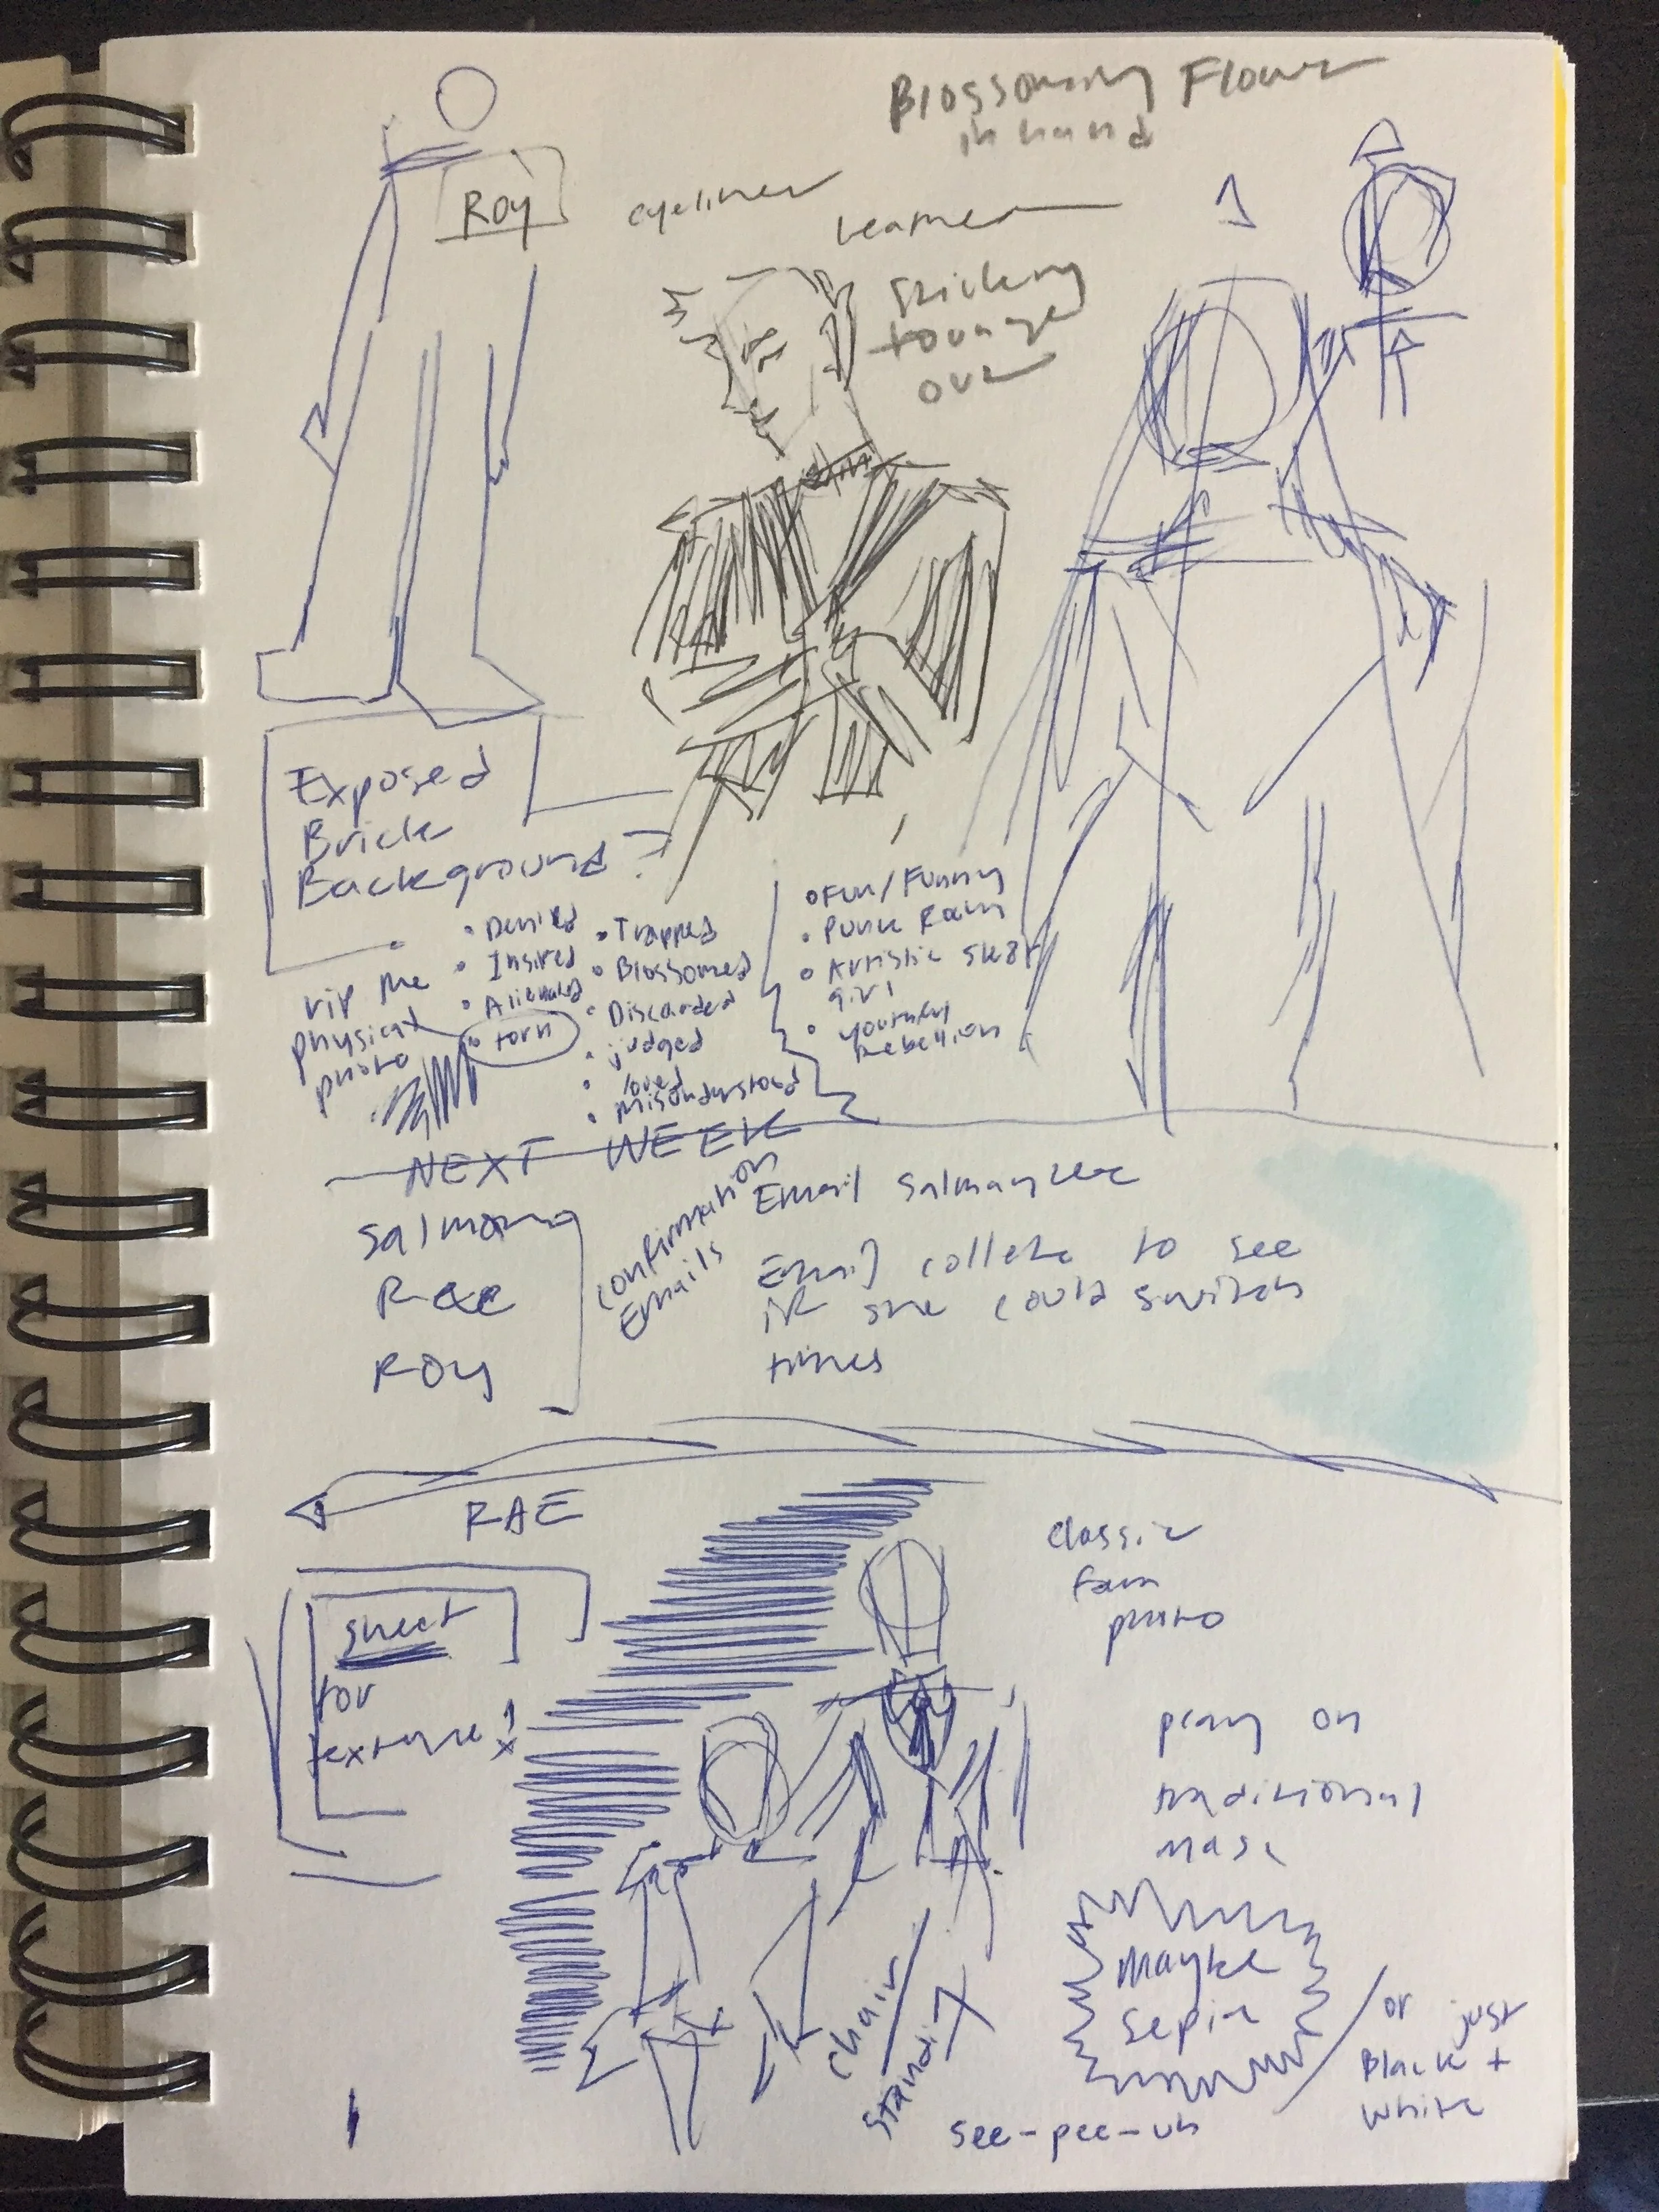 Blossoming Flower
in hand
Roy
eyeliner
Sticking
tounge
out
Exposed
Brick
Background?
• Denied
• Insired
• Alienated
• torn
rip the
physical
photo
• Trapped
• Blossomed
• Discarded
• judged
• loved
• Misunderstood
• Fun/Funny
• Punk
• Artistic sk8r
girl
• youthful
Rebellion
NEXT WEEK
Rae
Roy
confirmation
Emails
Email
Email collette to see
if she could switch
times
RAE
sheet
for
texture!
classic
fam
photo
play on
traditional
masc
Maybe
Sepia
or just
Black +
White
see-pee-uh
chair/
standi